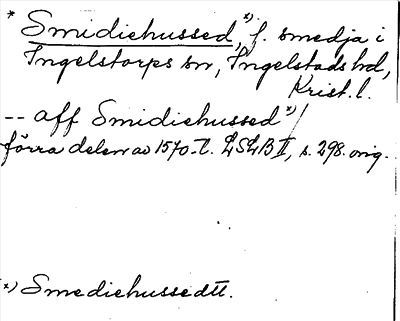 * Smidiehussed,ˣ⁾ f. smedja i
Ingelstorps sn, Ingelstads hd,
Krist. l.
-- aff Smidiehussed ˣ⁾/
förra delen av 1570-t. LSLB II, s. 298. orig.
x) Smediehussedtt.